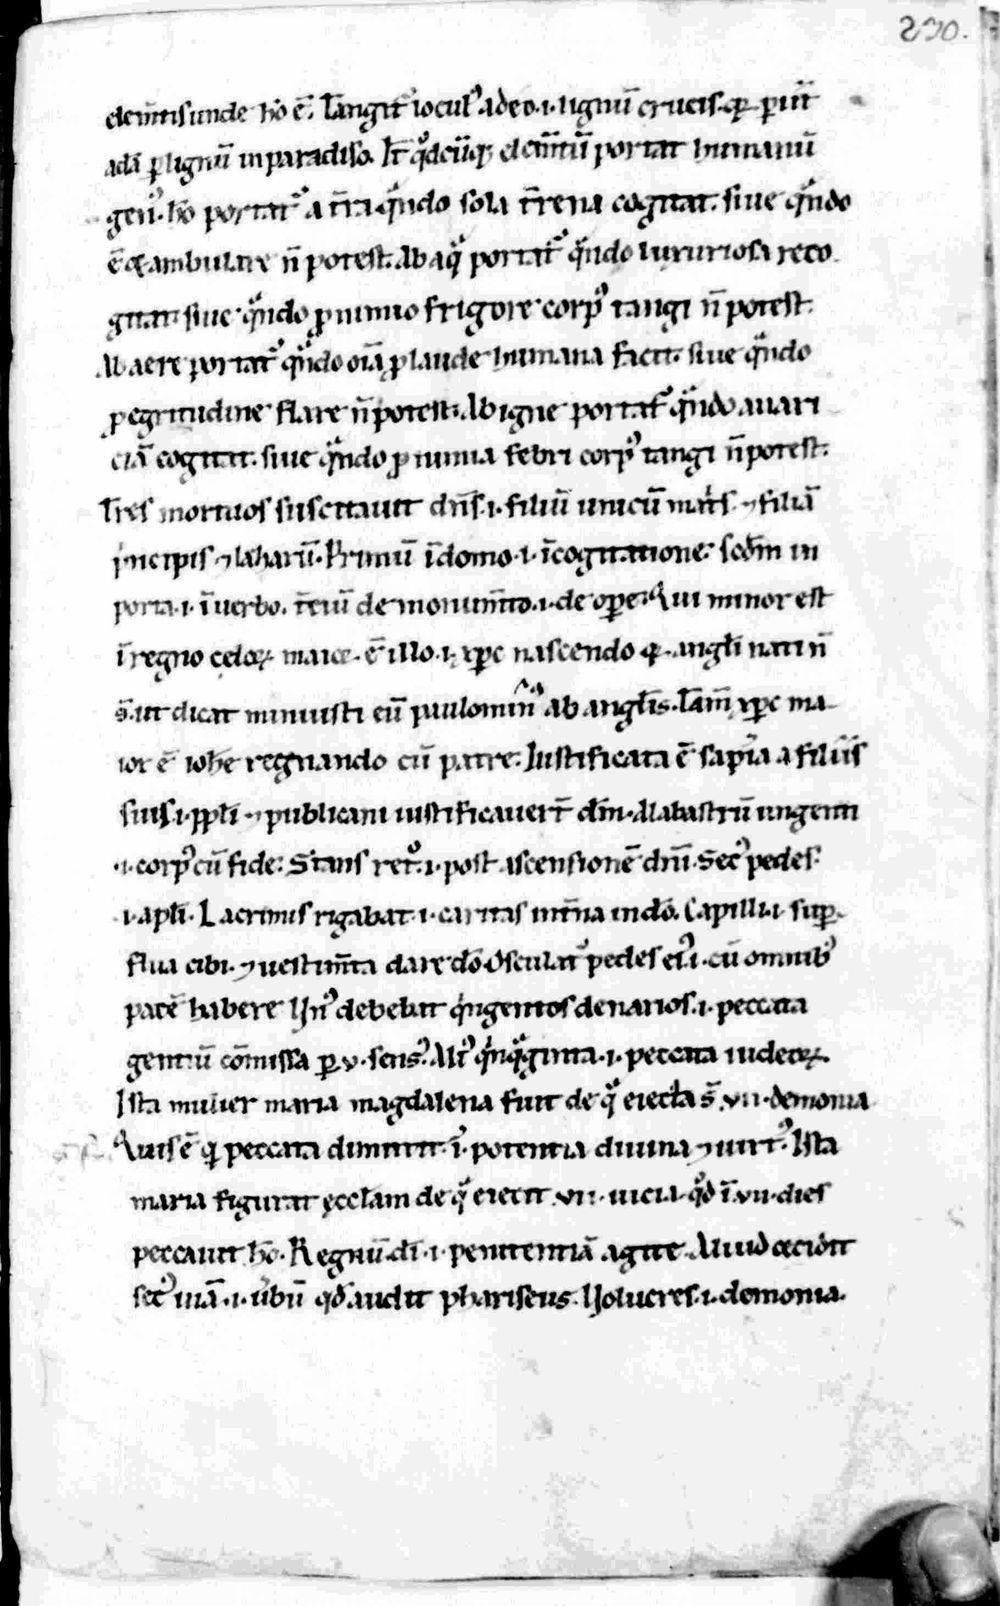 230.
elem̅tis unde ho e̅. Tangit᷒ locul᷒ a deo .i. lignu̅ crucis. q̅ p̱iit
ada̅ ꝑ lignu̅ in paradiso. It̅ qd̓cu̅q; elem̅tu̅ portat humanu̅
gen᷒. ho portat᷒ a t̅ra qn̅do sola t̅rena cogitat. siue qn̅do
e̅ & ambulare n̅ potest. Ab aq̓ portat᷒ qn̅do luxuriosa reco
gitat. siue qn̅do ꝓ nimio frigore corp᷒ tangi n̅ potest.
Ab aere portat᷒ qn̅do oi̅a ꝓ laude humana facit. siue qn̅do
ꝓ egritudine flare n̅ potest. Ab igne portat᷒ qn̅do auari
cia̅ cogitat. siue qn̅do ꝓ nimia febri corp᷒ tangi n̅ potest.
Tres mortuos suscitauit dn̅s .i. filiu̅ unicu̅ mat̓s. ⁊ filia̅
p̓ncipis ⁊ lazaru̅. Primu̅ i̅ domo .i. i̅ cogitatione. sc̅dm in
porta .i. i̅ uerbo. t̅ciu̅ de monum̅to .i. de oꝑe. Qui minor est
i̅ regno celoꝝ maior e̅ illo .i. xp̅c nascendo q̅ angl̅i nati n̅
s̅. ut dicat minuisti eu̅ paulomin᷒ ab angl̅is. Tam̅ xp̅c ma
ior e̅ ioh̅e regnando cu̅ patre. Iustificata e̅ sap̅ia a filiis
suis .i. ap̅l̅i ⁊ publicani iustificauer̅t dm̅. Alabastru̅ ungenti
.i. corp᷒ cu̅ fide. Stans ret᷒ .i. post ascensione̅ dn̅i. Sec᷒ pedes
.i. apl̅i. Lacrimis rigabat .i. caritas int̅na in do̅. Capilli .i. suꝑ
flua cibi ⁊ uestim̅ta dare do̅. Osculat᷒ pedes ei᷒ .i. cu̅ omnib᷒
pace̅ habere. Un᷒ debebat q̓ngentos denarios .i. peccata
gentiu̅ co̅missa ꝑ .v. sens᷒. Ali᷒ q̓nq̓ginta .i. peccata iudeoꝝ.
Ista mulier maria magdalena fuit de q̓ eiecta s̅ .vii. demonia.
Quis e̅ q̓ peccata dimittit. i̅. potentia diuina ⁊ uirt᷒. Ista
maria figurat eccl̅am de q̓ eiecit .vii. uicia. qd̓ i̅ .vii. dies
peccauit ho. Regnu̅ di̅ .i. penitentia̅ agite. Aliud cecidit
sec᷒ uia̅ .i. u̓bu̅ qd̓ audit phariseus. Uolucres .i. demonia.